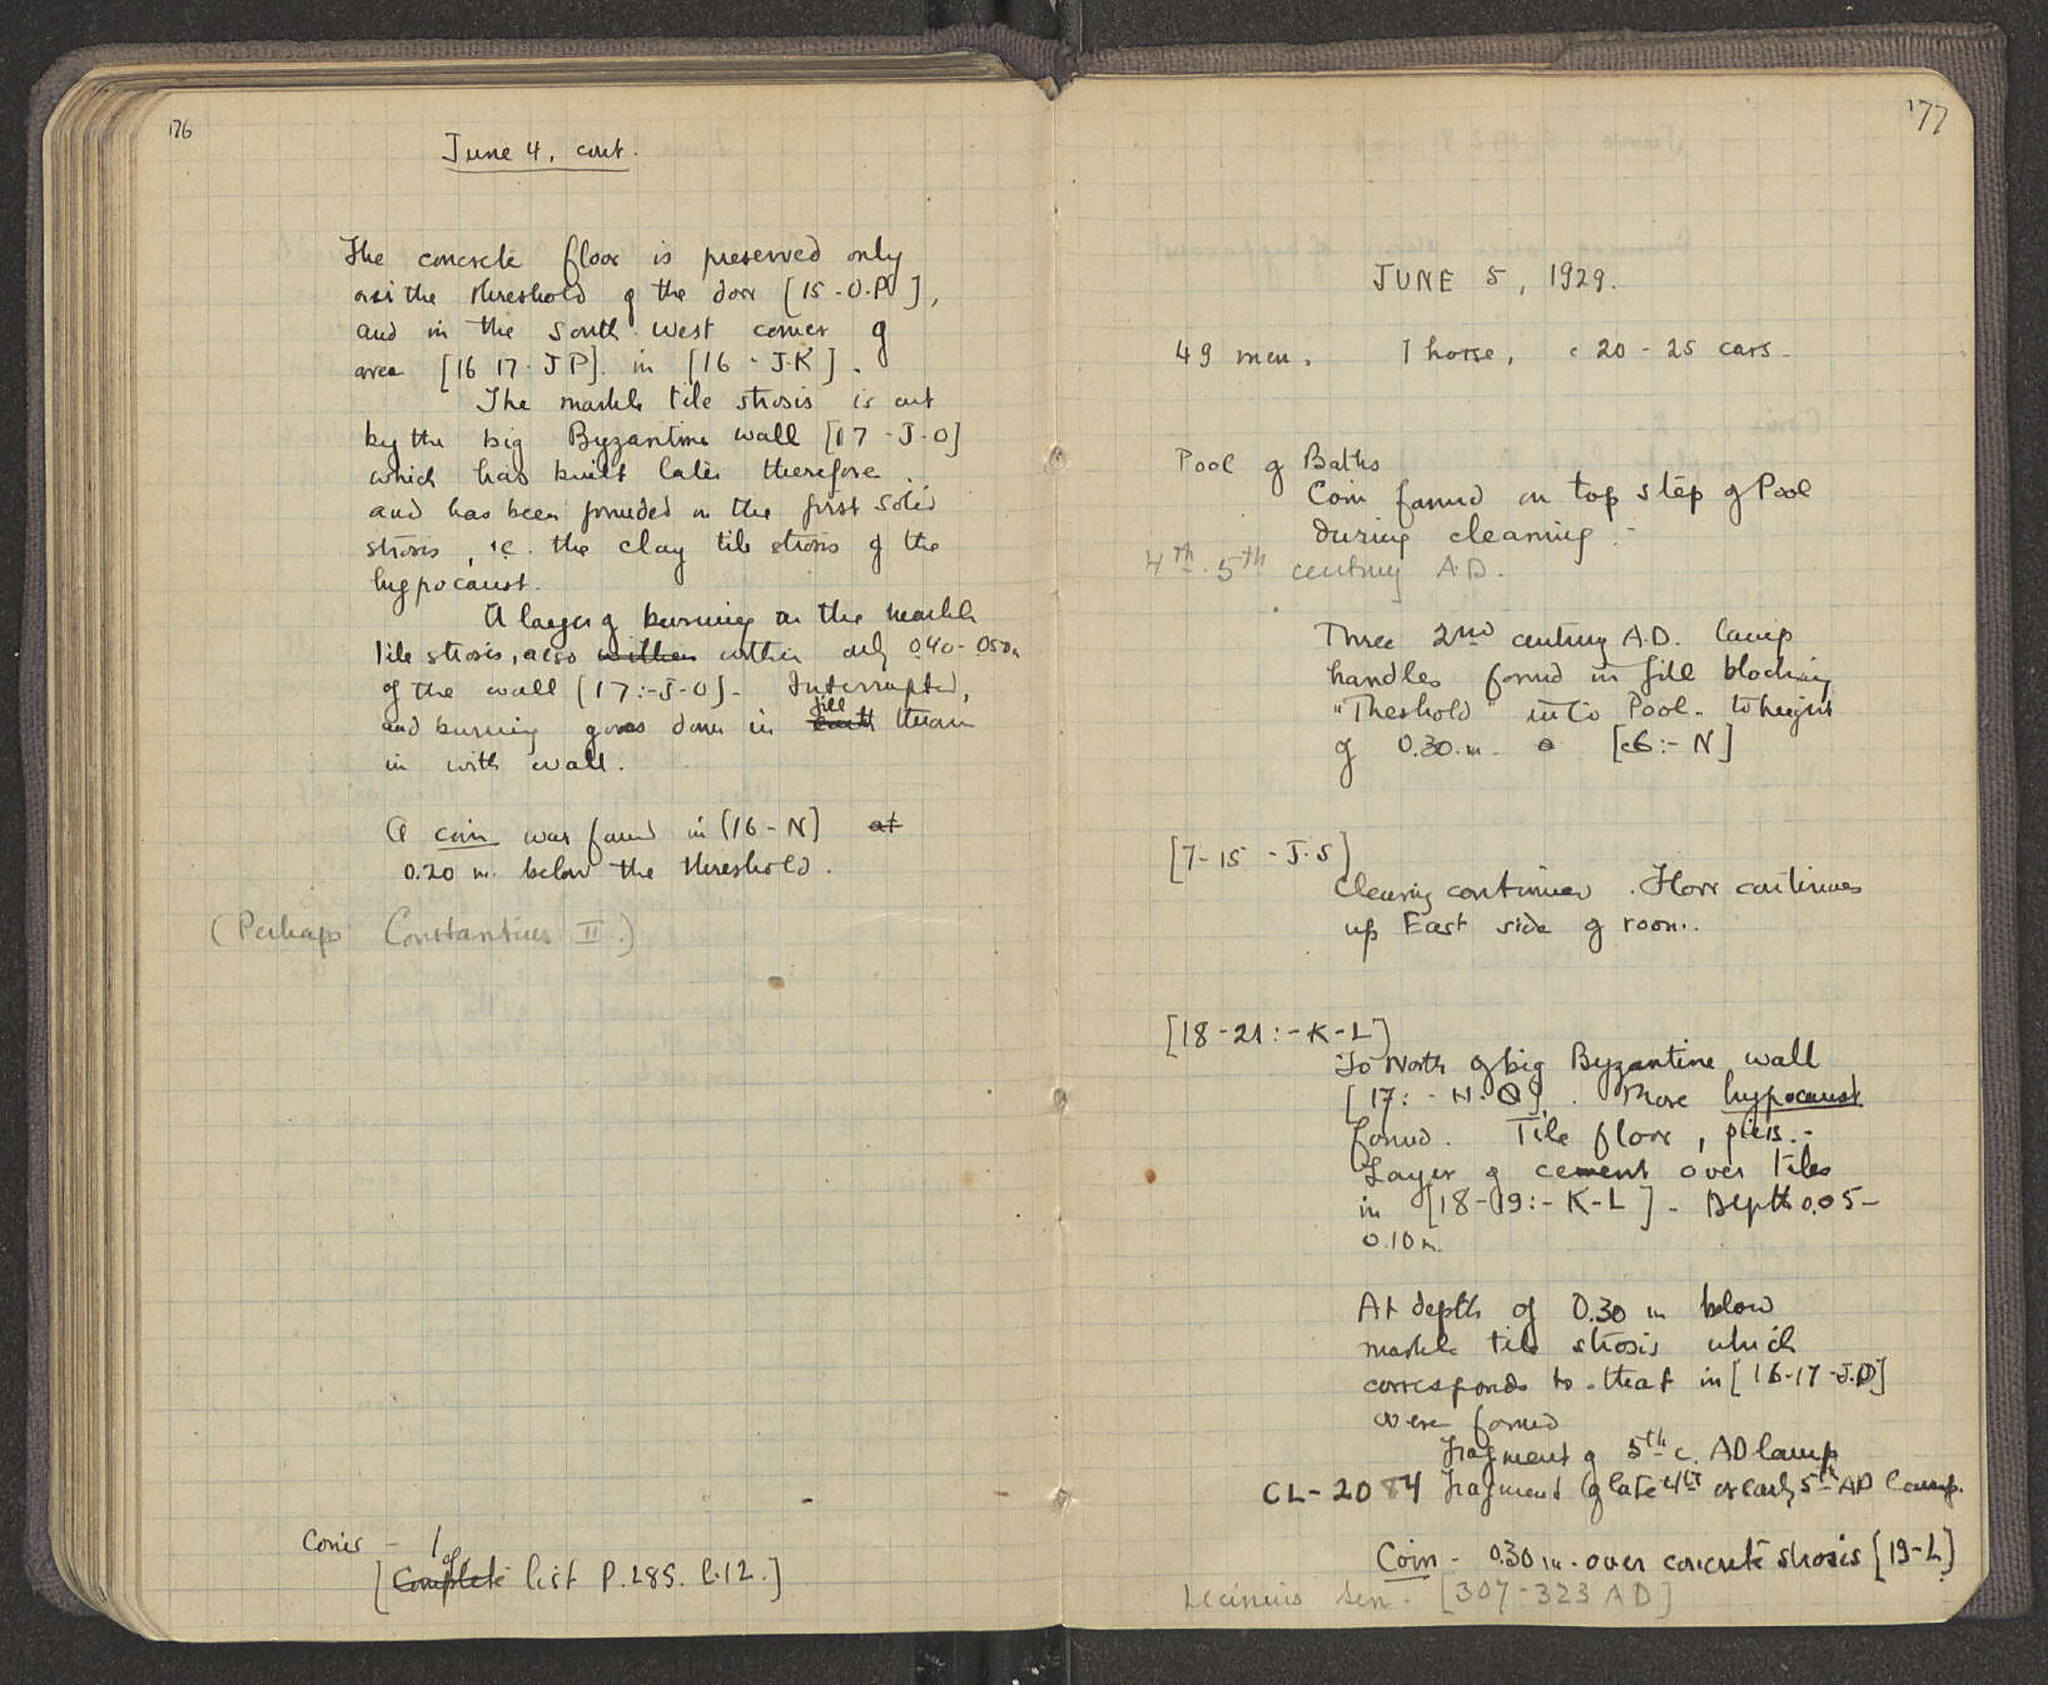 176
June 4, cont.
The concrete floor is preserved only
as the threshold of the door [15-O.P],
and in the South west corner of
area [16 17-J P]. in [16-J.K].
The marble tile strosis is cut
by the big Byzantine wall [17-J-O]
which has built later therefore
and has been founded on the first solid
strosis, i.e. the clay tile strosis of the
hypocaust.
A layer of burning on the marble
tile strosis, also within within only 0.40-0.50m
of the wall [17:-J-O]. Interrupted,
and burning goes down in earth fill than
in with wall.
A coin was found in [16-N] at
0.20 m. below the threshold.
(Perhaps Constantius II.)
Coins - 1
[Complete cf list P. 285. l.12.]
177
JUNE 5, 1929.
49 men, 1 horse, c 20-25 cars.
Pool of Baths
Coin found on top step of Pool
during cleaning.-
4th-5th century A.D.
Three 2nd century A.D. lamp
handles found in fill blocking
"Theshold" into Pool. to height
of 0.30.m. [c6:-N]
[7-15-J-S]
Clearing continued. Floor continues
up East side of room..
[18-21:-K-L]
To North of big Byzantine wall
[17:-N-O]. More hypocaust
found. Tile floor, piers.-
Layer of cement over tiles
in [18-19:-K-L]. Depth 0.05-
0.10m.
At depth of 0.30 m below
marble tile strosis which
corresponds to that in [16-17-J.O]
were found
fragment of 5th c. AD lamp
CL-2084 fragment of late 4th or early 5th AD lamp.
Coin - 0.30 m. over concrete strosis [19-L]
Licinius Sen. [307-323 AD]